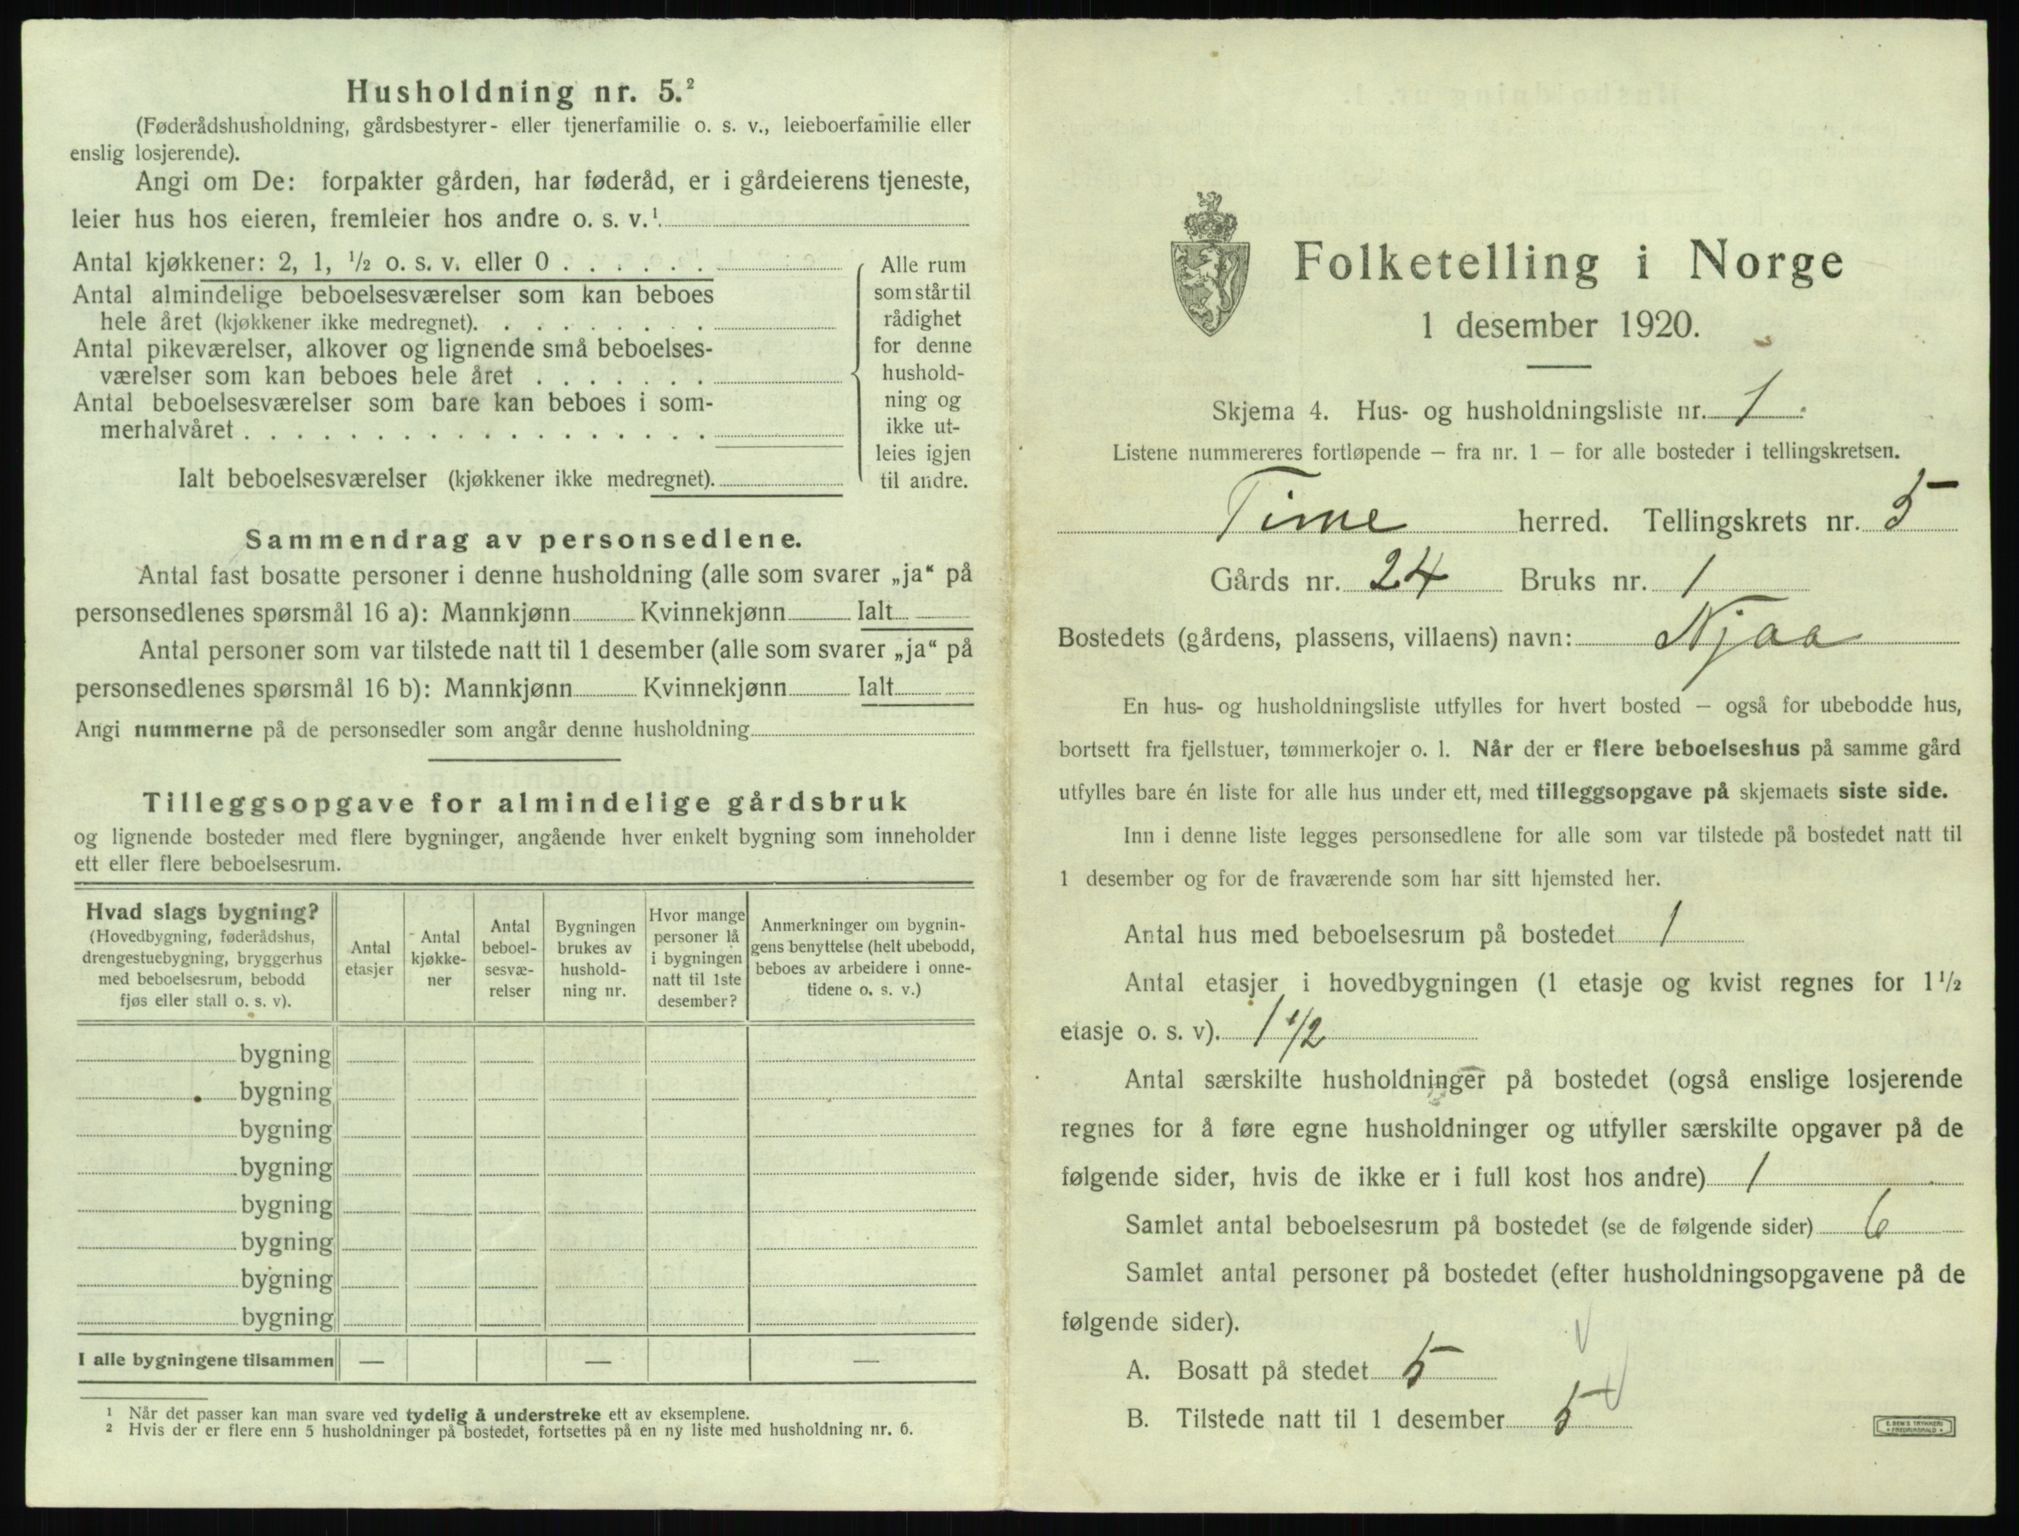 Husholdning nr. 5.²
(Føderådshusholdning, gårdsbestyrer- eller tjenerfamilie o. s. v., leieboerfamilie eller
enslig losjerende).
Angi om De: forpakter gården, har føderåd, er i gårdeierens tjeneste,
leier hus hos eieren, fremleier hos andre o. s. v.¹
Antal kjøkkener: 2, 1, ½ o. s. v. eller 0 . . . . . .
Antal almindelige beboelsesværelser som kan beboes
hele året (kjøkkener ikke medregnet). . . . . . . . .
Antal pikeværelser, alkover og lignende små beboelses-
værelser som kan beboes hele året . . . . . . .
Antal beboelsesværelser som bare kan beboes i som-
merhalvåret . . . . . . . . . . . . . . . . . .
Ialt beboelsesværelser (kjøkkener ikke medregnet).
Alle rum
som står til
rådighet
for denne
hushold-
ning og
ikke ut-
leies igjen
til andre.
Sammendrag av personsedlene.
Antal fast bosatte personer i denne husholdning (alle som svarer „ja“ på
personsedlenes spørsmål 16 a): Mannkjønn Kvinnekjønn Ialt
Antal personer som var tilstede natt til 1 desember (alle som svarer „ja“ på
personsedlenes spørsmål 16 b): Mannkjønn Kvinnekjønn Ialt
Angi nummerne på de personsedler som angår denne husholdning
Tilleggsopgave for almindelige gårdsbruk
og lignende bosteder med flere bygninger, angående hver enkelt bygning som inneholder
ett eller flere beboelsesrum.
Hvad slags bygning?
(Hovedbygning, føderådshus,
drengestuebygning, bryggerhus
med beboelsesrum, bebodd
fjøs eller stall o. s. v).
Antal
etasjer
Antal
kjøkke-
ner
Antal
beboel-
sesvæ-
relser
Bygningen
brukes av
hushold-
ning nr.
Hvor mange
personer lå
i bygningen
natt til 1ste
desember?
Anmerkninger om bygnin-
gens benyttelse (helt ubebodd,
beboes av arbeidere i onne-
tidene o. s. v.)
bygning
bygning
bygning
bygning
bygning
bygning
bygning
bygning
I alle bygningene tilsammen — — —
¹ Når det passer kan man svare ved tydelig å understreke ett av eksemplene.
² Hvis der er flere enn 5 husholdninger på bostedet, fortsettes på en ny liste med husholdning nr. 6.
Folketelling i Norge
1 desember 1920.
Skjema 4. Hus- og husholdningsliste nr. 1
Listene nummereres fortløpende – fra nr. 1 – for alle bosteder i tellingskretsen.
Time herred. Tellingskrets nr. 5
Gårds nr. 24 Bruks nr. 1
Bostedets (gårdens, plassens, villaens) navn: Njaa
En hus- og husholdningsliste utfylles for hvert bosted – også for ubebodde hus,
bortsett fra fjellstuer, tømmerkojer o. l. Når der er flere beboelseshus på samme gård
utfylles bare én liste for alle hus under ett, med tilleggsopgave på skjemaets siste side.
Inn i denne liste legges personsedlene for alle som var tilstede på bostedet natt til
1 desember og for de fraværende som har sitt hjemsted her.
Antal hus med beboelsesrum på bostedet 1
Antal etasjer i hovedbygningen (1 etasje og kvist regnes for 1½
etasje o. s. v). 1 1/2
Antal særskilte husholdninger på bostedet (også enslige losjerende
regnes for å føre egne husholdninger og utfyller særskilte opgaver på de
følgende sider, hvis de ikke er i full kost hos andre) 1
Samlet antal beboelsesrum på bostedet (se de følgende sider) 6
Samlet antal personer på bostedet (efter husholdningsopgavene på de
følgende sider).
A. Bosatt på stedet 5
B. Tilstede natt til 1 desember 5